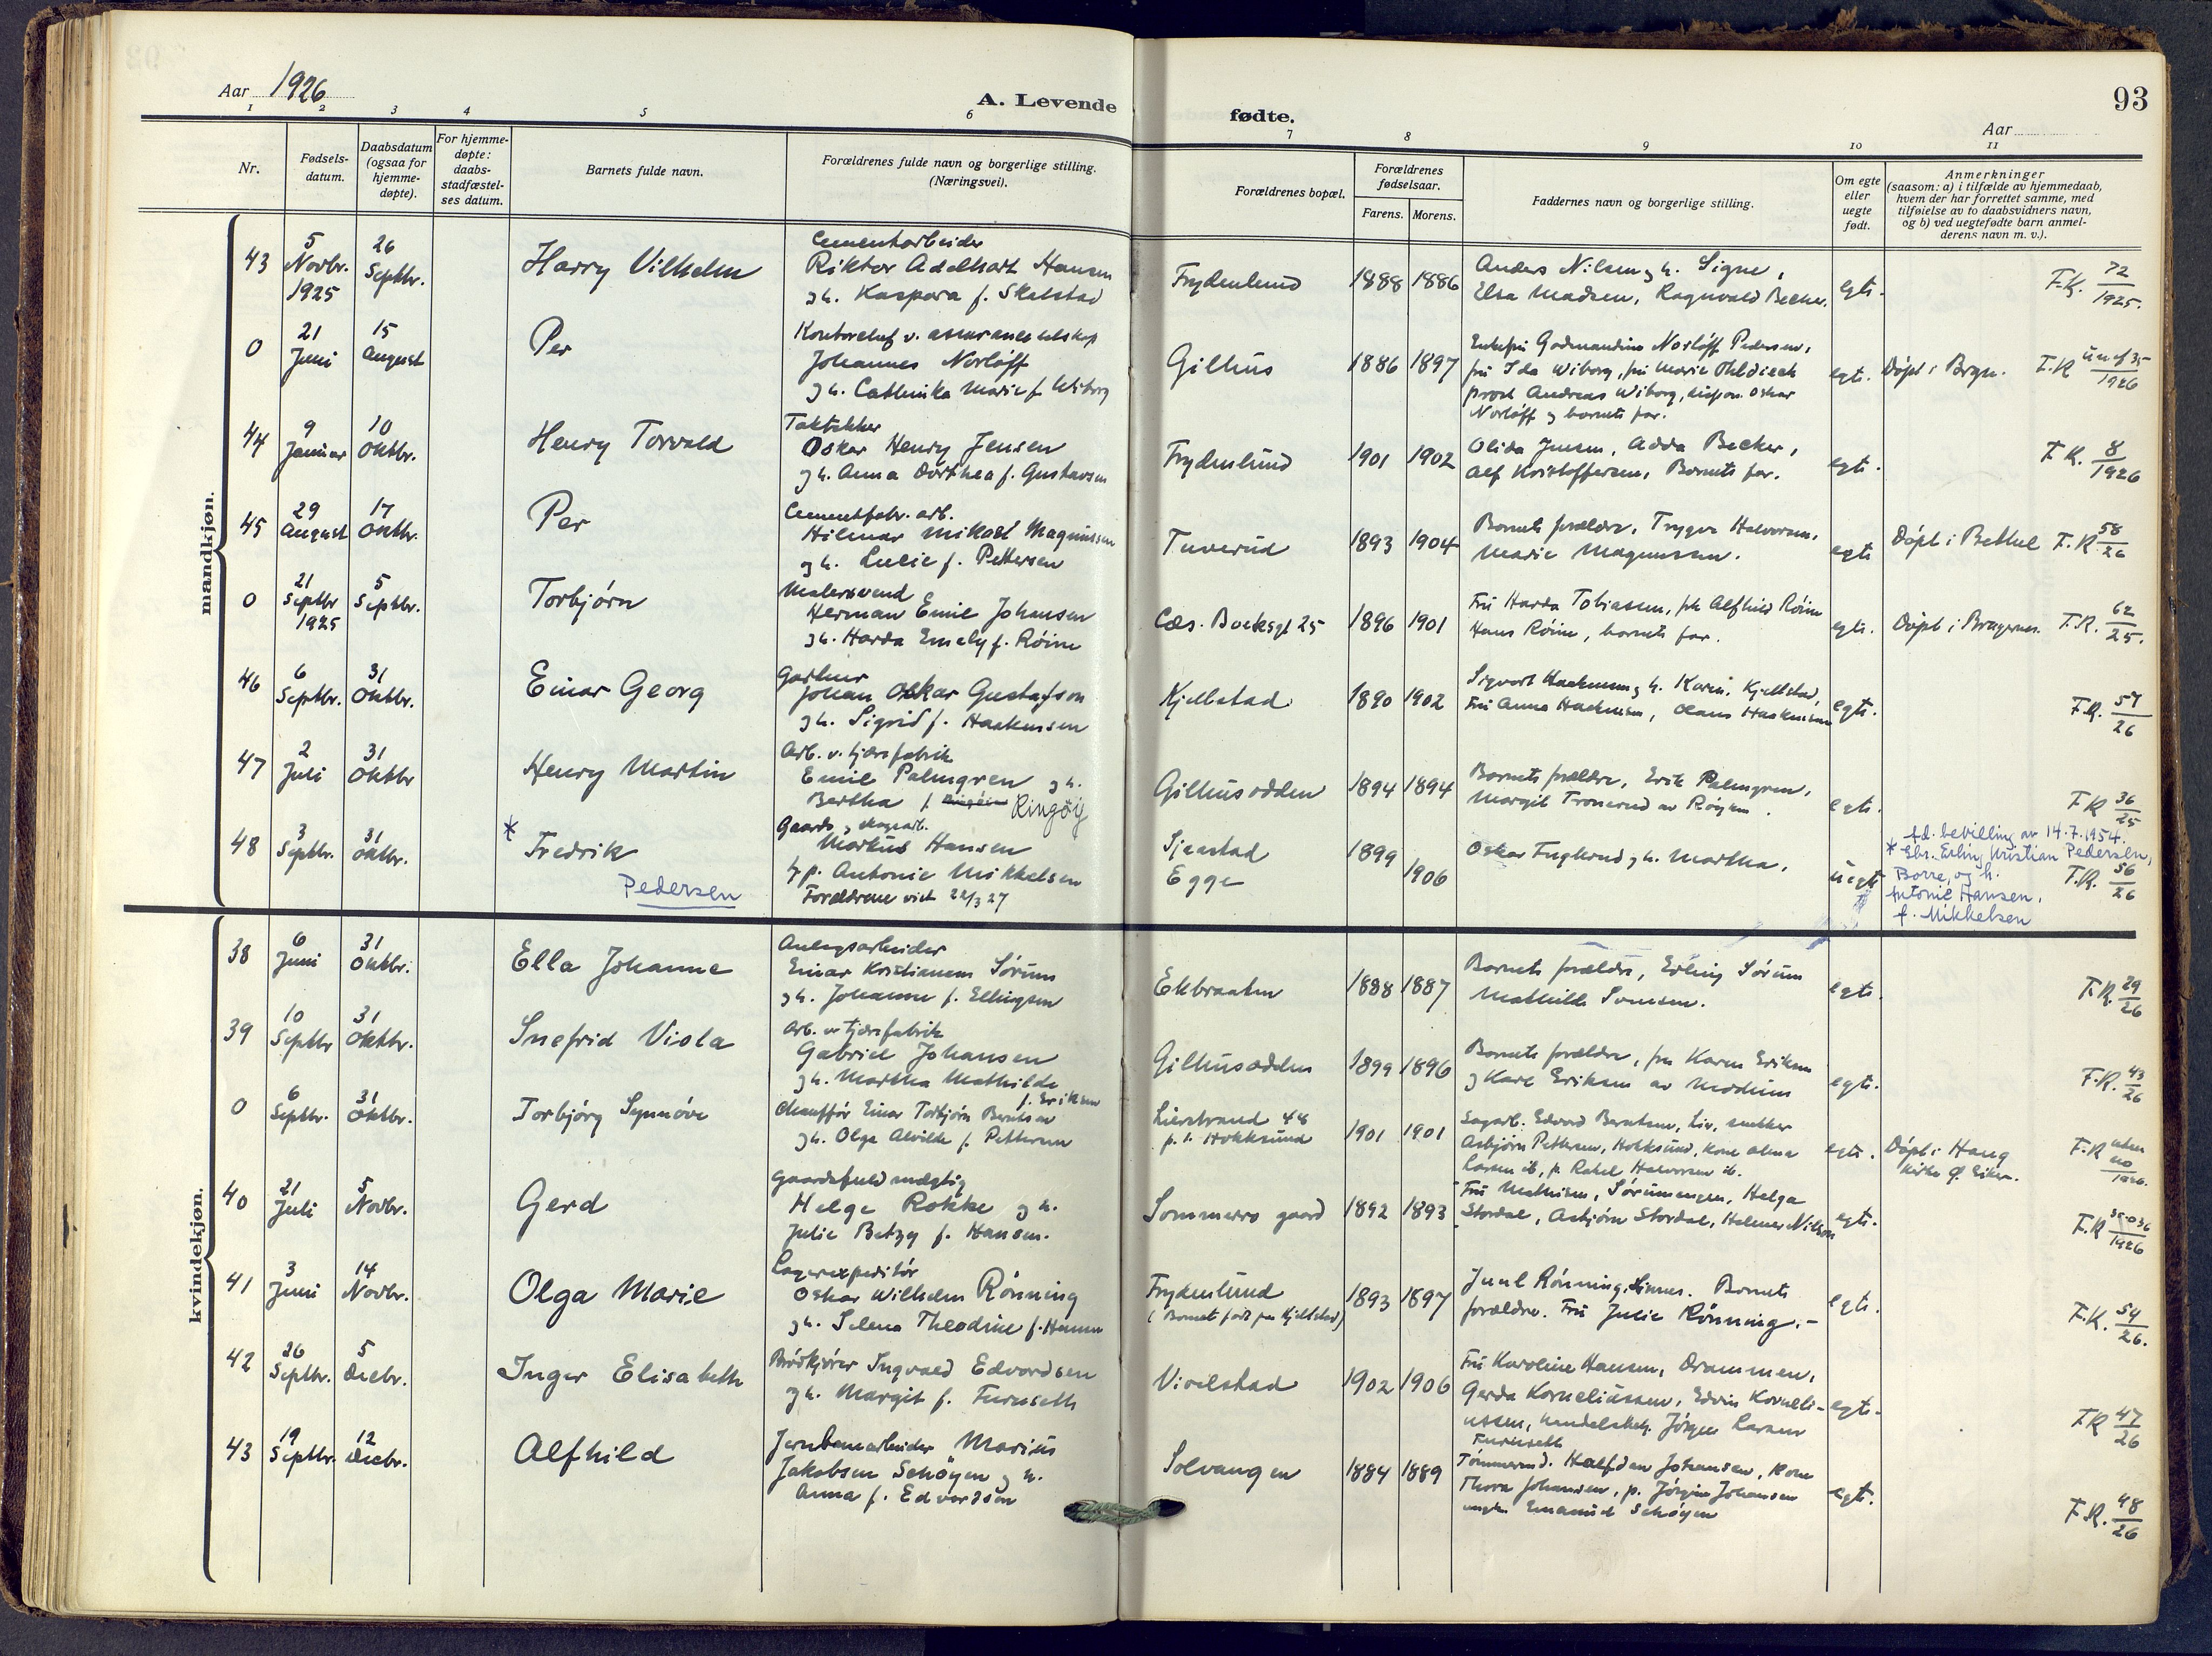 93
Aar 1926
A. Levende fødte.
Aar
1 2 3 4 5 6 7 8 9 10 11
Nr.
Fødsels-
datum.
Daabsdatum
(ogsaa for
hjemme-
døpte).
For hjemme-
døpte:
daabs-
stadfæstel-
ses datum.
Barnets fulde navn.
Forældrenes fulde navn og borgerlige stilling.
(Næringsvei).
Forældrenes bopæl.
Forældrenes
fødselsaar.
Farens. Morens.
Faddernes navn og borgerlige stilling.
Om egte
eller
uegte
født.
Anmerkninger
(saasom: a) i tilfælde av hjemmedaab,
hvem der har forrettet samme, med
tilføielse av to daabsvidners navn,
og b) ved uegtefødte barn anmel-
derens navn m. v.).
mandkjøn.
43
5
Novbr.
1925
26
Septbr.
Harry Vilhelm
Cementarbeider
Riktor Adelhart Hansen
og h. Kaspara f. Skalstad
Frydenlund
1888 1886
Anders Nilsen og h. Signe,
Elsa Madsen, Ragnvald Becker.
egte.
F.K. 72/1925.
0
21
Juni
15
August
Per
Kontorchef v. assuranceselskap
Johannes Norløff
og h. Cathinka Marie f. Wiborg
Gilhus
1886 1897
Enkefru Gudmandine Norløff Pedersen,
fru Ida Wiborg, fru Marie
prost Andreas Wiborg, dispon. Oskar
Norløff og barnets far.
egte.
Døpt i Brgn.
F.K. 35/1926
44
9
Januar
10
Oktbr.
Henry Torvald
Taktækker
Oskar Henry Jensen
og h. Anna Dorthea f. Gustavsen
Frydenlund
1901 1902
Olida Jensen, Adda Becker,
Alf Kristoffersen, Barnets far.
egte.
F.K. 8/1926
45
29
August
17
Oktbr.
Per
Cementfabr. arb.
Hilmar Mikael Magnussen
og h. Lucie f. Pettersen
Tuverud
1893 1904
Barnets forældre, Trygve Halvorsen,
Marie Magnussen.
egte
Døpt i Bethel
F.K. 58/26
0
21
Septbr
1925
5
Septbr.
Torbjørn
Malersvend
Herman Emil Johansen
og h. Harda Emely f. Røine
Cæs. Boeksgt 25
1896 1901
Fru Harda Tobiassen, frk Alfhild Røine
Hans Røine, barnets far.
egte.
Døpt i Bragernes.
F.K. 62/25.
46
6
Septbr.
31
Oktbr.
Einar Georg
Gartner
Johan Oskar Gustafson
og h. Sigrid f. Haakensen
Kjellstad
1890 1902
Sigvart Haakensen og h. Karin, Kjellstad,
Fru Anna Haakensen, Olaus Haakensen
egte.
F.K. 57/26
47
2
Juli
31
Oktbr
Henry Martin
Arb. v. tjærefabrik
Emil Palmgren og h.
Bertha f. Ringøij
Gilhusodden
1894 1894
Barnets forældre, Erik Palmgren,
Margit Tronerud av Røyken.
egte.
F.K. 36/25
48
3
Septbr.
31
Oktbr.
* Fredrik
Pedersen
Gaards og skogsarb.
Markus Hansen
& p. Antonie Mikkelsen
Forældrene viet 22/3 27
Sjåstad
Egge
1899
1906
Oskar Fuglerud og h. Martha.
uegte
f.d. bevilling av 14.7.1954.
* Ebr. Erling Kristian Pedersen,
Borre, og h.
Antonie Hansen,
f. Mikkelsen
F.K. 56/26
kvindekjøn.
38
6
Juni
31
Oktbr.
Ella Johanne
Anlegsarbeider
Einar Kristiansen Sørum
og h. Johanne f. Ellingsen
Ekbraaten
1888 1887
Barnets forældre, Erling Sørum
Mathilde
egte.
F.K. 29/26
39
10
Septbr
31
Oktbr.
Snefrid Viola
Arb. v. tjærefabrik
Gabriel Johansen
og h. Martha Mathilde
f. Eriksen
Gilhusodden
1899 1896
Barnets forældre, fru Karen Eriksen
og Karl Eriksen av Modum
egte.
F.K. 43/26
0
6
Septbr.
31
Oktbr.
Torbjørg Synnøve
Chauffør Einar Torbjørn Berntsen
og h. Olga Alvilde f. Pettersen
Lierstrand 48
p. t. Hokksund
1901 1901
Sagarb. Edvard Berntsen, Liv, snekker
Asbjørn Pettersen, Hokksund, kone Alma
Larsen ib, p. Rakel Halvorsen ib.
egte.
Døpt i Haug
kirke Ø. Eiker.
F.K. uten no 1926.
40
21
Juli
5
Novbr.
Gerd
Gaardsfuldmægtig
Helge Rokke og h.
Julie Betzy f. Hansen.
Sommerro gaard
1892 1893
Fru Mathisen, Sørumengen, Helga
Stordal, Asbjørn Stordal, Halmer Nilsen
egte.
F.K. 1926
41
3
Juni
14
Novbr.
Olga Marie
Lagerexpeditør
Oskar Wilhelm Rønning
og h. Selena Theodine f. Hansen
Frydenlund
(Barnet født paa Kjellstad)
1893 1897
Juul Rønning, Linnes. Barnets
forældre. Fru Julie Rønning.-
egte.
F.K. 54/26.
42
26
Septbr.
5
Decbr.
Inger Elisabeth
Brødkjører Ingvald Edvardsen
og h. Margit f. Furuseth
Vivelstad
1902 1906
Fru Karoline Hansen, Drammen,
Gerda Korneliussen, Edvin Korneli-
ussen, handelsbetj. Jørgen Larsen
Furuseth
egte.
F.K. 47/26
43
19
Septbr.
12
Decbr.
Alfhild
Jernbanearbeider Marius
Jakobsen Schøyen og h.
Anna f. Edvardsen
Solvangen
1884 1889
Tømmermd. Halfdan Johansen, kone
Thora Johansen, p. Jørgine Johansen
ungk. Emanuel Schøyen
egte.
F.K. 48/26